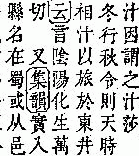 汁因謂之汁莎
冬行秋令則天時
相汁以旅於東井
云言陰陽化生萬
切 又集韻實入
縣名在蜀或从邑